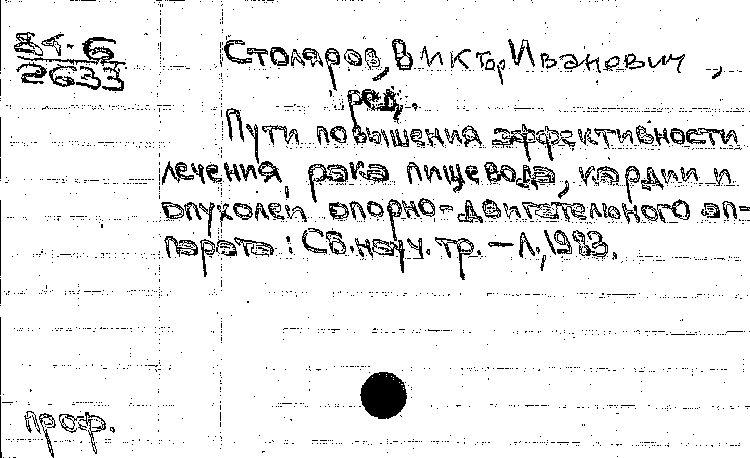 84-6
2633
Столяров, Виктор Иванович,
ред.
Пути повышения эффективности
лечения рака пищевода, кардии и
опухолей опорно-двигательного ап-
парата: Сб. науч. тр. — Л., 1983.
проф.